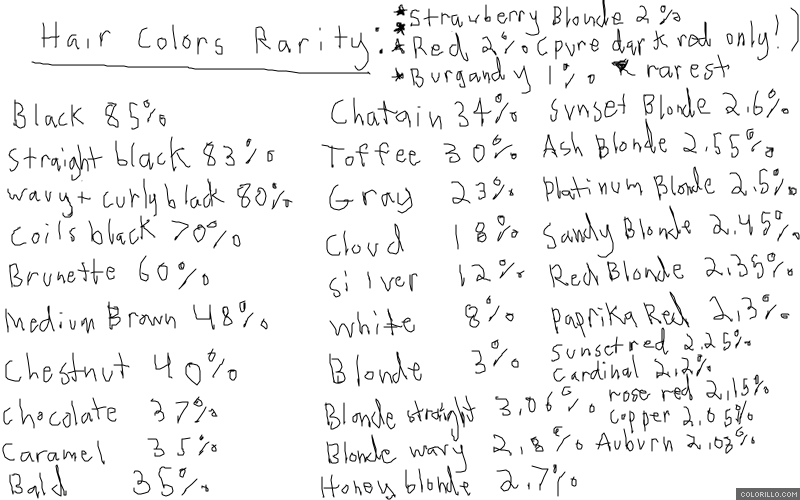 Hair Colors Rarity:
*Strawberry Blonde 2%
*Red 2% (pure dark red only!)
*Burgandy 1% rarest
Black 85%
Straight black 83%
wavy + curly black 80%
Coils black 70%
Brunette 60%
Medium Brown 48%
Chestnut 40%
Chocolate 37%
Caramel 35%
Bald 35%
Chatain 34%
Toffee 30%
Gray 23%
Cloud 18%
silver 12%
white 8%
Blonde 3%
Blonde straight 3.06%
Blonde wavy 2.8%
Honey blonde 2.7%
Sunset Blonde 2.6%
Ash Blonde 2.55%
Platinum Blonde 2.5%
Sandy Blonde 2.45%
Red Blonde 2.35%
Paprika Red 2.3%
Sunset red 2.25%
Cardinal 2.2%
rose red 2.15%
Copper 2.05%
Auburn 2.03%
COLORILLO.COM